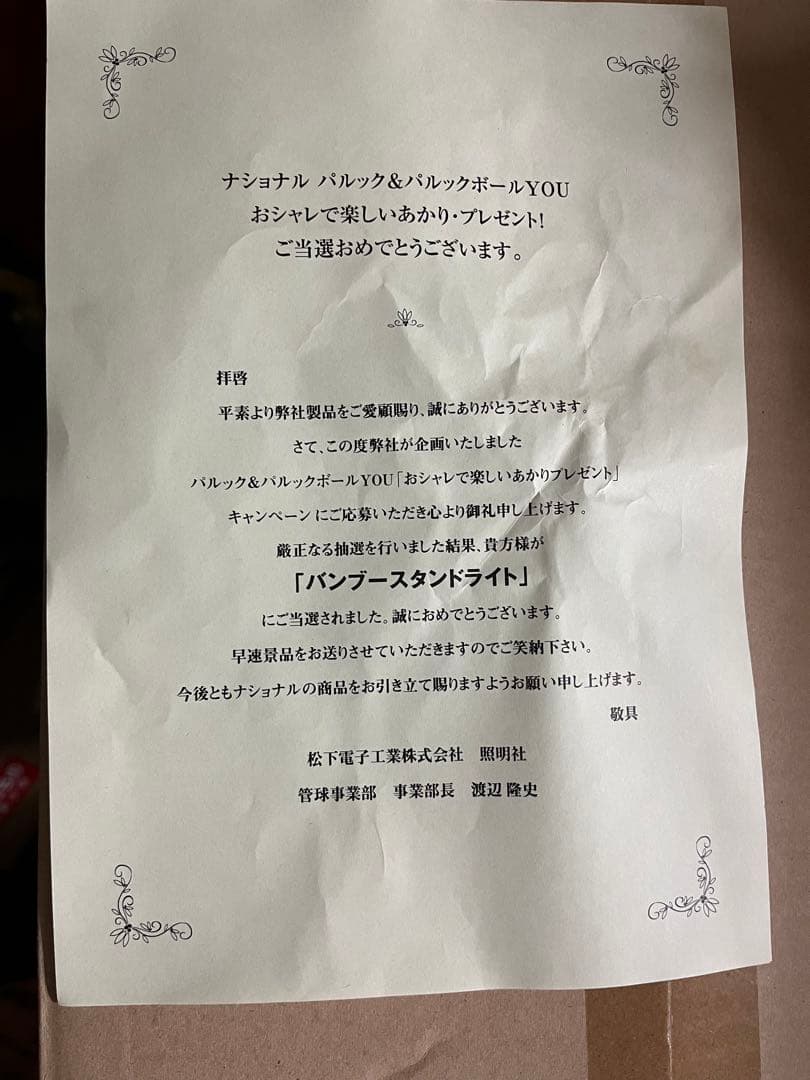 ナショナル パルック&パルックボールYOU
おシャレで楽しいあかり・プレゼント!
ご当選おめでとうございます。
拝啓
平素より弊社製品をご愛顧賜り、誠にありがとうございます。
さて、この度弊社が企画いたしました
パルック&パルックボールYOU「おシャレで楽しいあかりプレゼント」
キャンペーンにご応募いただき心より御礼申し上げます。
厳正なる抽選を行いました結果、貴方様が
「バンブースタンドライト」
にご当選されました。誠におめでとうございます。
早速景品をお送りさせていただきますのでご笑納下さい。
今後ともナショナルの商品をお引き立て賜りますようお願い申し上げます。
敬具
松下電子工業株式会社 照明社
管球事業部 事業部長 渡辺 隆史